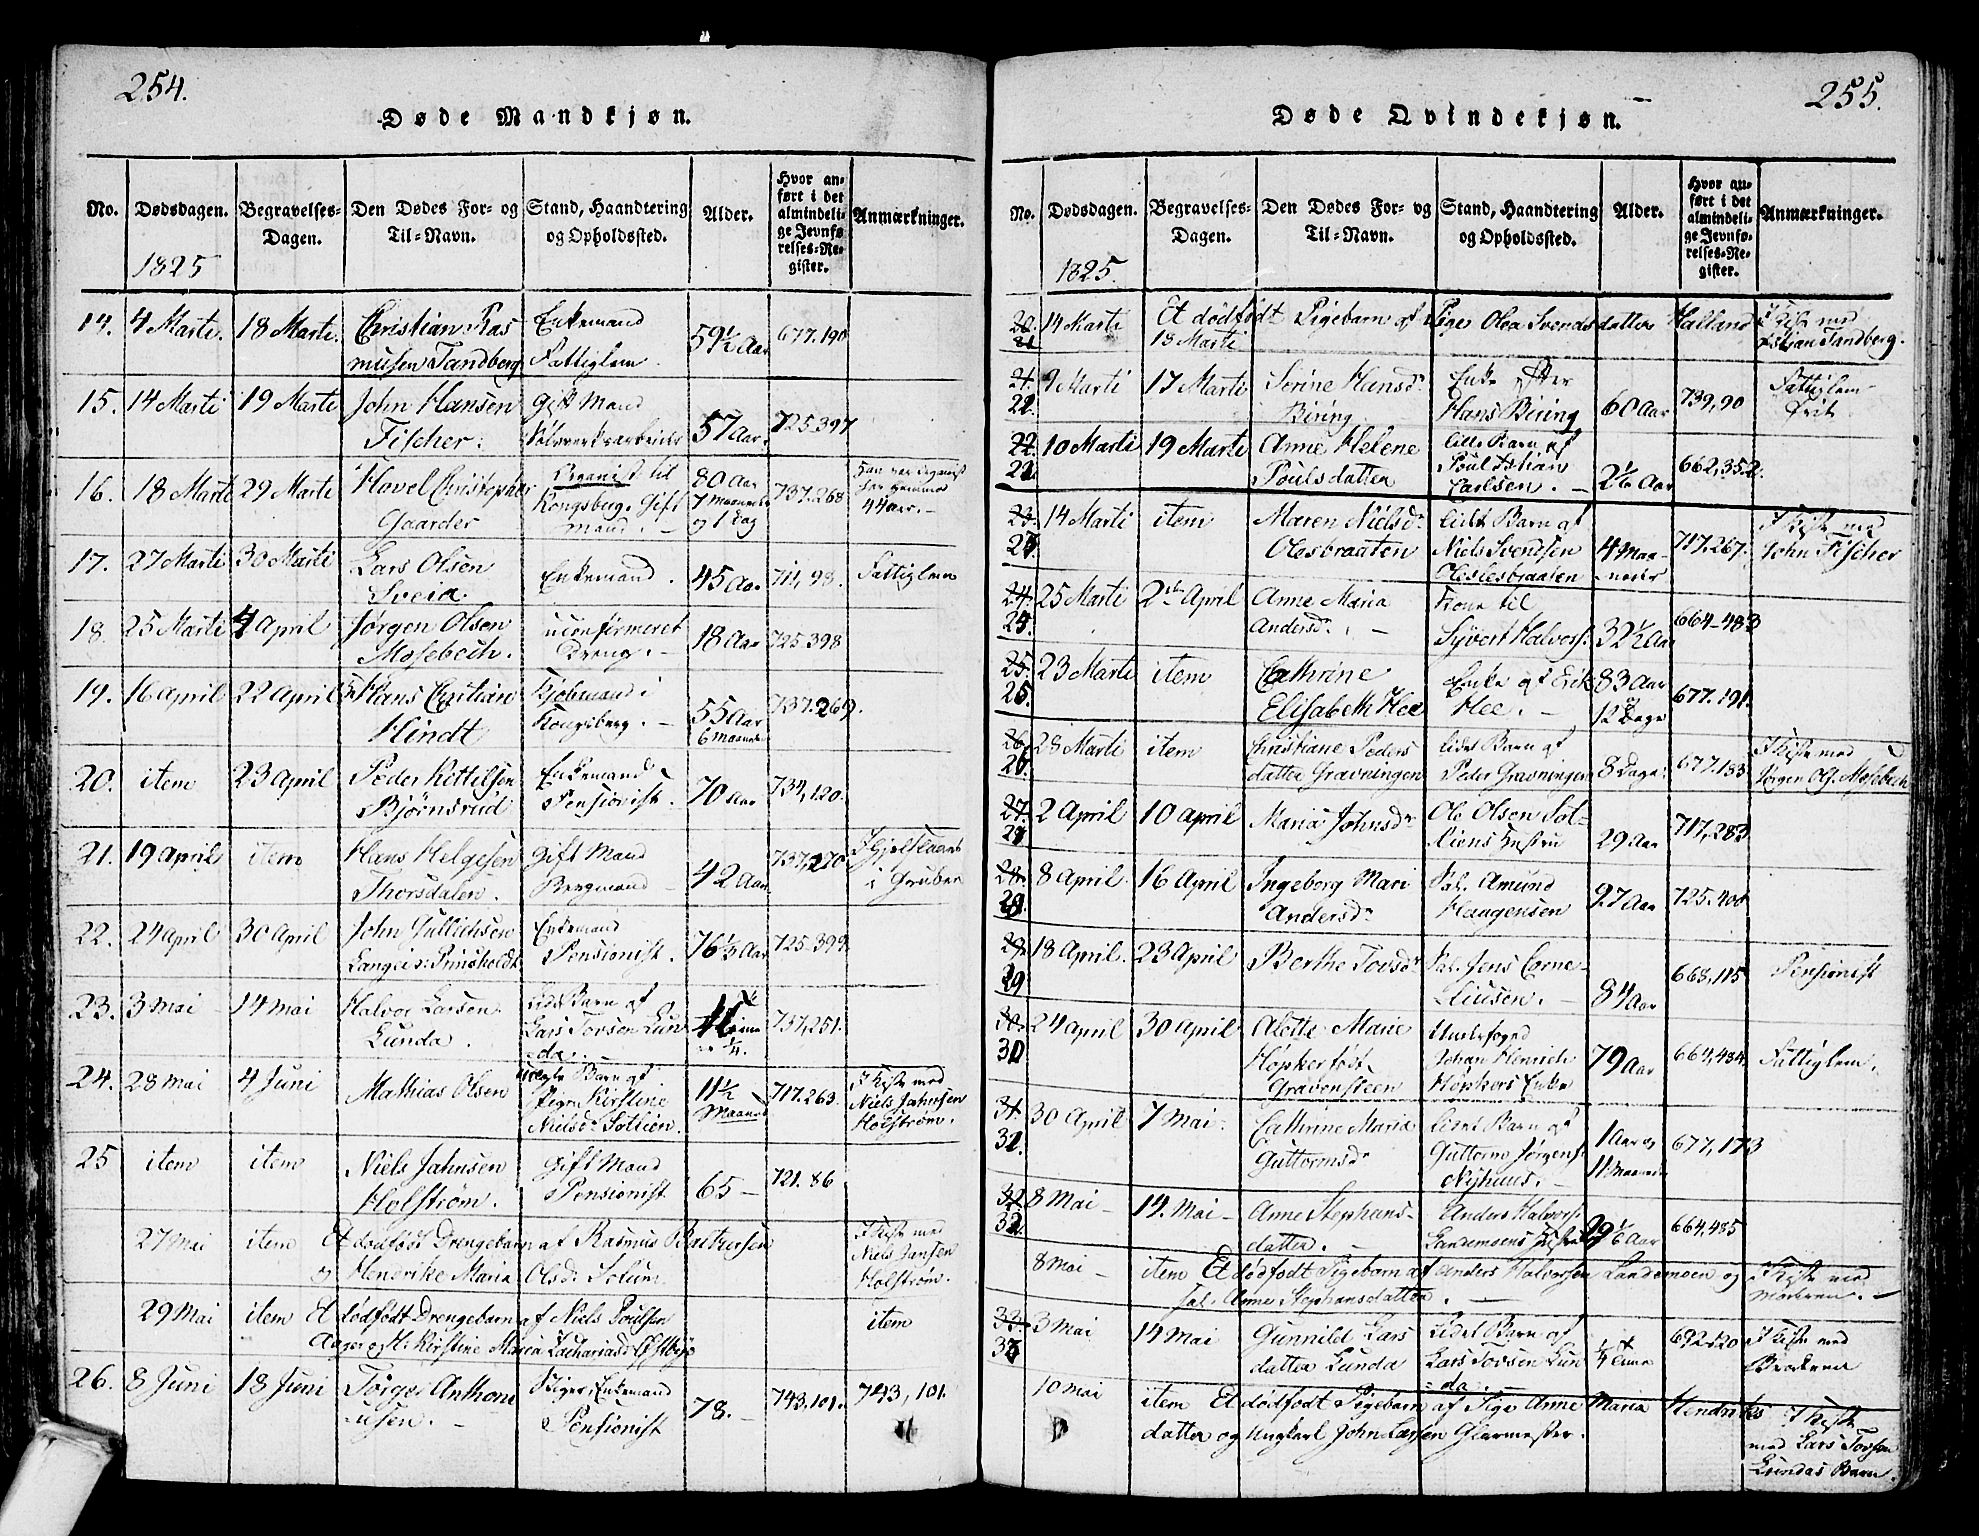 254.
Døde Mandkjøn.
No. Dødsdagen. Begravelses-Dagen. Den Dødes For- og Til-Navn. Stand, Haandtering og Opholdssted. Alder. Hvor anført i det almindelige Jevnførelses-Register. Anmærkninger.
1825
14. 4 Marti. 18 Marti. Christian Rasmusen Tandberg Enkemand Fattiglem. 59½ Aar 677.190
15. 14 Marti 19 Marti John Hansen Fischer. Gift Mand Sølvverksarbeider 57 Aar. 725.397
16. 18 Marti 29 Marti Havel Christopher Gaarder Organist til Kongsberg. Gift Mand. 80 Aar 7 Maaneder og 1 Dag 737.268 Han var Organist her hjemme 44 aar.
17. 27 Marti 30 Marti Lars Olsen Sveia. Enkemand. 45 Aar 711,98. Fattiglem
18. 25 Marti 4 April Jørgen Olsen Mosebech. uconfirmeret Dreng. 18 Aar 725.398
19. 16 April 22 April Hans Christian Hindt Kjøbmand i Kongsberg. 55 Aar 6 Maaneder 737.269.
20. item 23 April Peder Kittilsen Bjørnsrud Enkemand Pensionist. 70 Aar 734,120.
21. 19 April item Hans Helgesen Thorsdalen. Gift Mand Bergmand 42 Aar 737,270. Ihjelslaaet i Gruben
22. 24 April 30 April John Gullichsen Enkemand Pensionist. 76⅓ Aar 725.399.
23. 3 Mai 14 Mai Halvor Larsen Lunda. Lidet Barn af Lars Tovsen Lunda. 737,251.
24. 28 Mai 4 Juni Mathias Olsen uægte Barn af Pige Kirstine Nielsdr Sollien. 11½ Maaned 717.263. I Kiste med Niels Jahnsen Holstrøm.
25 item item Niels Jahnsen Holstrøm. Gift Mand Pensionist 65 721.86
27 Mai item Et dødfødt Drengebarn af Rasmus og Hendrike Maria Olsdr Solum. I Kiste med Niels Jansen Holstrøm.
29 Mai item Et dødfødt Drengebarn af Niels Poulsen Aager og H: Kirstine Maria item
26. 8 Juni 18 Juni Tørger Anthoniusen. Stiger, Enkemand Pensionist 78. 743,101. 743,101.
255.
Døde Qvindekjøn.
No. Dødsdagen. Begravelses-Dagen. Den Dødes For- og Til-Navn. Stand, Haandtering og Opholdssted. Alder. Hvor anført i det almindelige Jevnførelses-Register. Anmærkninger.
1825.
20 21 14 Marti 18 Marti Et dødfødt Pigebarn af Pige Olea Svendsdatter Halland I Kiste med Tandberg.
21. 22. 9 Marti 17 Marti Serine Hansdr Biring Enke efter Hans Biring 60 Aar 739,90 Fattiglem
22. 10 Marti 19 Marti Anne Helene Poulsdatter lille Barn af Poul Carlsen. 2⅙ Aar 662,352.
23. 14 Marti item Maren Nielsdr Olesbraaten Lidet Barn af Niels Svendsen Olislesbraaten 4 Maaneder 717.267. I Kiste med John Fischer
24. 25 25 Marti 2den April Anne Maria Andersdr. Kone til Syvert Halvors: 32½ Aar 664-483
25. 23 Marti item Cathrine Elisabeth Hee Enke af Erik Hee. 83 Aar 12 Dage 677.191.
26. 28 Marti item Christiane Pedersdatter Gravningen Lidet Barn af Peder Gravningen 8 Dage 677.133 I Kiste med Jørgen Ols. Mosebech
27. 2 April 10 April Maria Johnsdr Ole Olsen Solliens Hustru 29 Aar 717,283
28. 8 April. 16 April Ingeborg Mari Andersdr Sal. Amund Haagensen 97 Aar 725.400
29 18 April. 23 April Berthe Tovsdr Sal. Jens Corneliusen. 84 Aar 668,115 Pensionist
30. 24 April 30 April Alette Marie Hopker født Gravensteen Underfoged Johan Hinrich Hopkers Enke 79 Aar 664,484 Fattiglem.
31 30 April 7 Mai. Cathrine Maria Guttormsdr Lidet Barn af Guttorm Jørgens: Nyhuus. 1 Aar og 11 Maaned 677,173
32 8 Mai 14. Mai Anne Stephansdatter. Anders Halvors: Landemoens Hustru 29⅙ Aar 664,485
8 Mai item Et dødfødt Pigebarn af Anders Halvorsen Landemoen og Sal. Anne Stephansdatter. I Kiste med Moderen.
33 3 Mai 14 Mai Gunnild Larsdatter Lunda Lidet Barn af Lars Tovsen Lunda ¼ Time 692.120 I Kiste med Broderen
10 Mai item Et dødfødt Pigebarn af Pige Anne Maria Hendriksdatter og Ungkarl John Larsen Glarmester. I Kiste med Lars Tovsen Lundas Barn.